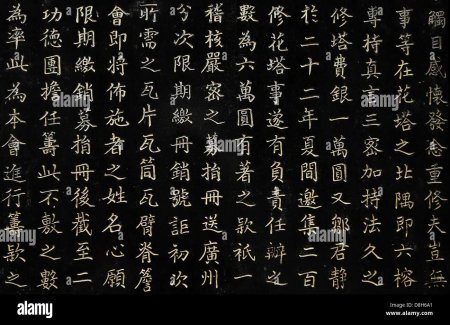 觸目感懷發念重修夫豈無
事等在花塔之北隅即六榕
專持真言三密加持法久之
修塔費銀一萬圓又鄒君静
於二十二年夏間邀集二百
修花塔事遂有負責任辦之
數為六萬圓有著之款祇一
稽核嚴密之募捐冊送廣州
分次限期繳冊銷號詎初次
所需之瓦片瓦筒瓦臂脊簷
會即將佈施者之姓名心願
限期繳銷募捐冊後截至二
功德團擔任籌此不敷之數
為率此為本會進行籌款之
alamy